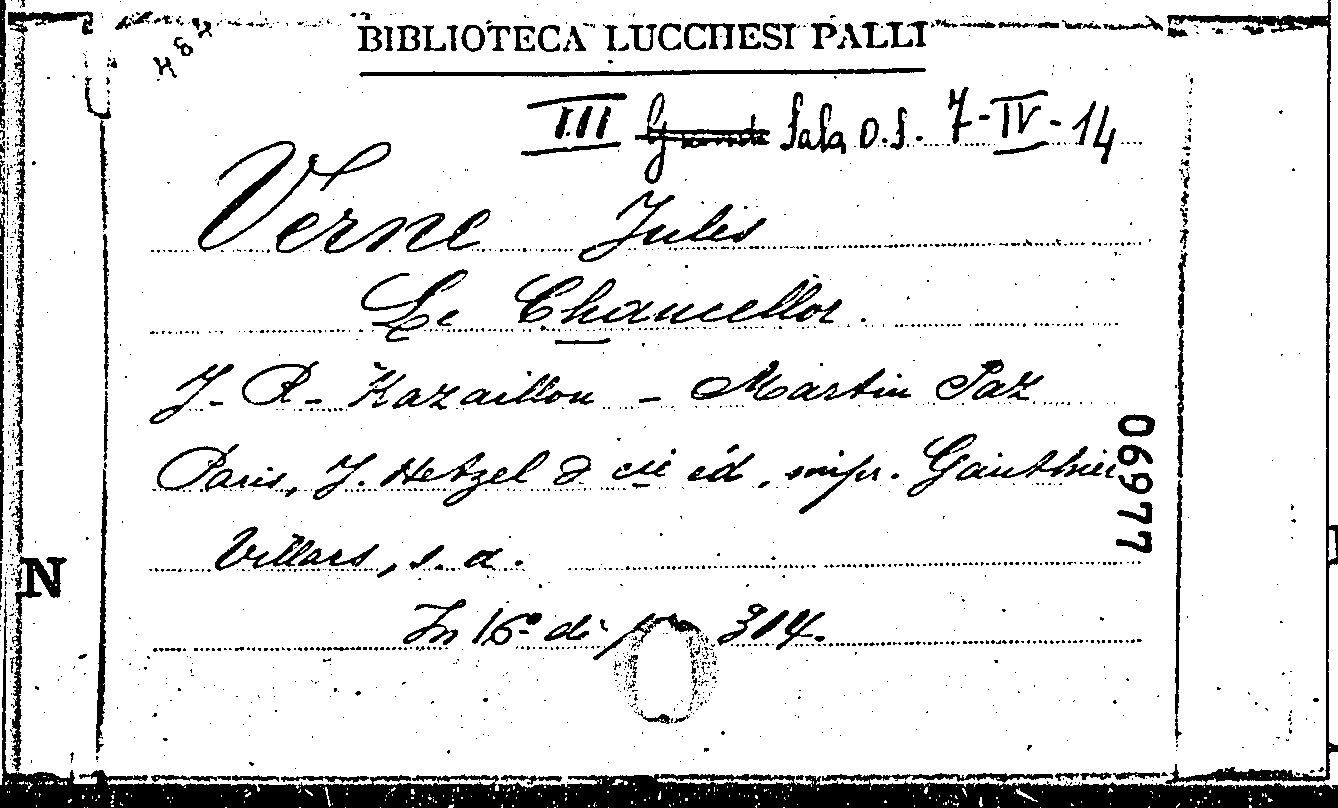 BIBLIOTECA LUCCHESI PALLI
III Sala O.S. 7-IV-14
Verne Jules
Le Chancellor.
J-R-Kazaillou - Martin Paz
Paris, J. Hetzel & cie éd, impr. Gauthier
Villars, s. d.
In 16º di 314.
06977
N